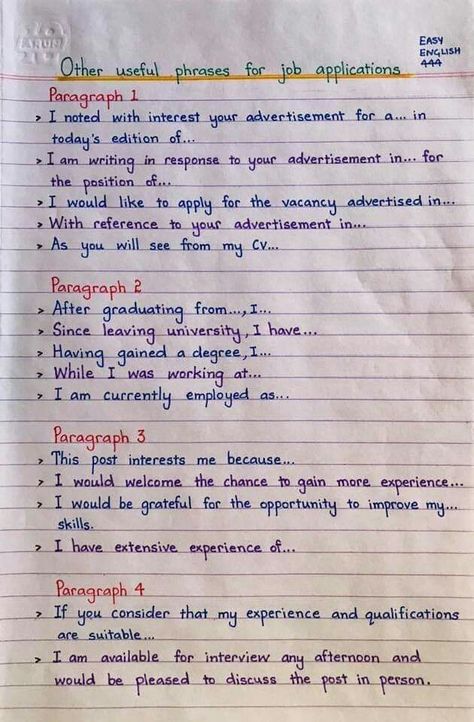 EASY
ENGLISH
444
Other useful phrases for job applications
Paragraph 1
> I noted with interest your advertisement for a... in
today's edition of...
> I am writing in response to your advertisement in... for
the position of...
> I would like to apply for the vacancy advertised in...
> With reference to your advertisement in...
> As you will see from my CV...
Paragraph 2
> After graduating from..., I...
> Since leaving university, I have...
> Having gained a degree, I...
> While I was working at...
> I am currently employed as...
Paragraph 3
> This post interests me because...
> I would welcome the chance to gain more experience...
> I would be grateful for the opportunity to improve my...
skills.
> I have extensive experience of...
Paragraph 4
> If you consider that my experience and qualifications
are suitable...
> I am available for interview any afternoon and
would be pleased to discuss the post in person.